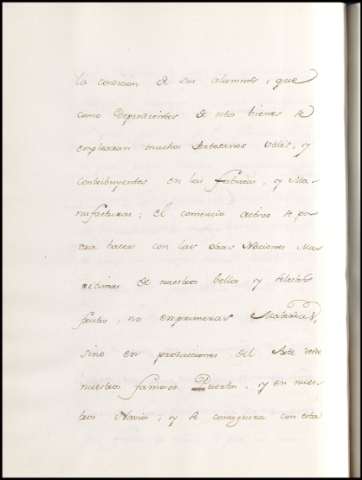 la conducion de sus alumnos, que
como dependientes de estos bienes se
emplearan muchos vasallos utiles, y
contribuyentes en las fabricas, y Ma-
nufacturas; el comercio activo se po-
dra hacer con las otras Naciones Ma-
ritimas de nuestros bellos y
frutos, no en primeras Materias,
sino en producciones del Arte
nuestros famosos Puertos, y en nues-
tros Navios; y se conseguira con esta